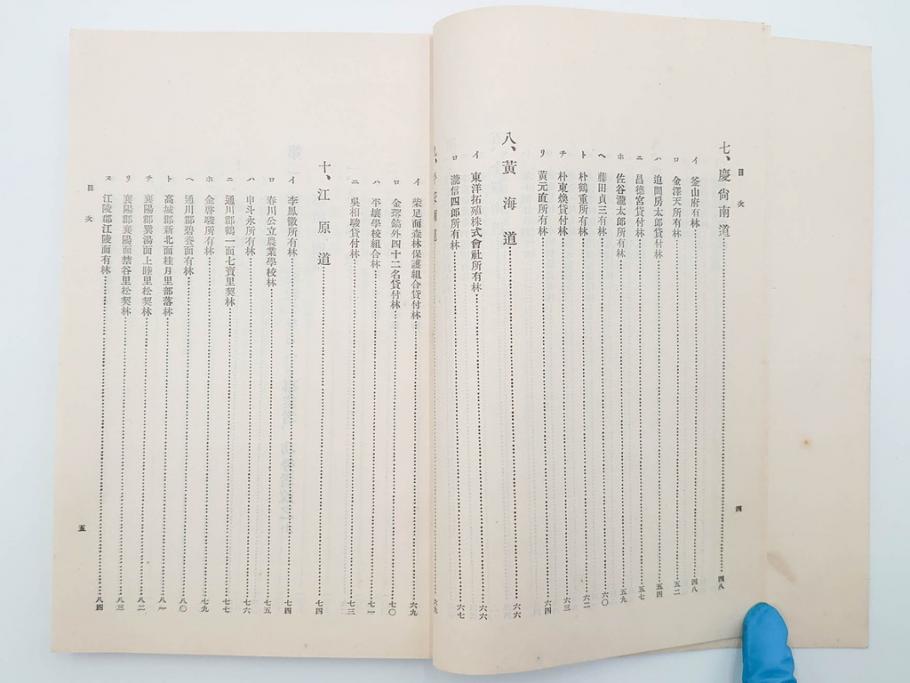 目次
七、慶尙南道……四八
イ 釜山府有林……四八
ロ 金澤天所有林……五二
ハ 迫間房太郎貸付林……五四
ニ 昌德宮貸付林……五七
ホ 佐谷瀧太郎所有林……五九
ヘ 藤田貞三有林……六〇
ト 朴鶴重所有林……六二
チ 朴東煥貸付林……六三
リ 黃元直所有林……六四
八、黃海道……六六
イ 東洋拓殖株式會社所有林……六六
ロ 瀧信四郎所有林……六七
四
イ 柴足面森林保護組合貸付林……六九
ロ 外四十二名貸付林……七〇
ハ 平壤學校組合林……七一
ニ 吳相駿貸付林……七三
十、江原道……七四
イ 李鳳徽所有林……七四
ロ 春川公立農業學校林……七五
ハ 申斗永所有林……七六
ニ 通川郡鶴一面七寶里契林……七七
ホ 金啓 所有林……七九
ヘ 通川郡碧養面有林……八〇
ト 高城郡新北面桂月里部落林……八一
チ 襄陽郡巽湯面上睦里松契林……八二
リ 襄陽郡襄陽面 谷里松契林……八三
ヌ 江陵郡江陵面有林……八四
目次
五